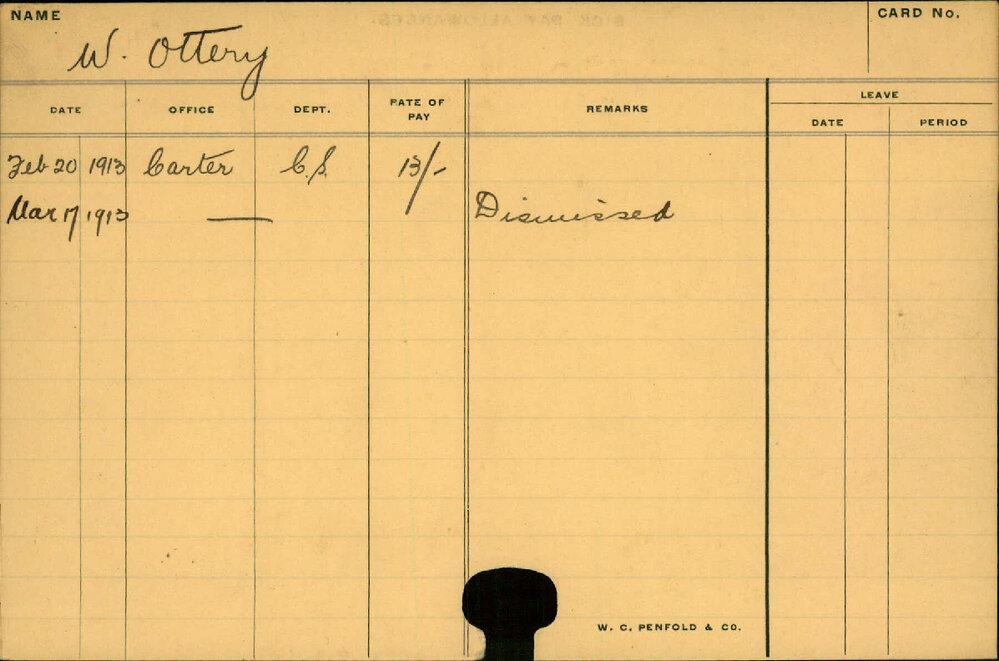 NAME
CARD No.
W. Ottery
DATE OFFICE DEPT. RATE OF PAY REMARKS LEAVE
DATE PERIOD
Feb 20 1913 Carter C.S. 13/-
Mar 17 1913 — Dismissed
W. C. PENFOLD & CO.